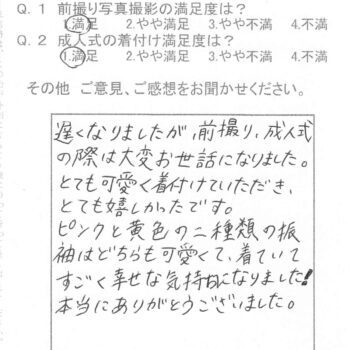 Q.１ 前撮り写真撮影の満足度は？
1.満足 2.やや満足 3.やや不満 4.不満
Q.２ 成人式の着付け満足度は？
1.満足 2.やや満足 3.やや不満 4.不満
その他 ご意見、ご感想をお聞かせください。
遅くなりましたが、前撮り、成人式
の際は大変お世話になりました。
とても可愛く着付けていただき、
とても嬉しかったです。
ピンクと黄色の二種類の振
袖はどちらも可愛くて、着ていて
すごく幸せな気持ちになりました!
本当にありがとうございました。